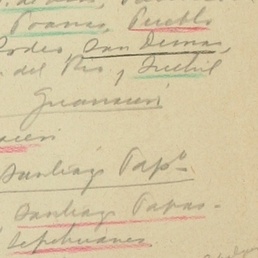 Poanas, Pueblo
Rodeo, San Dimas,
del Rio y Suchil
Guanaceví
Santiago Papº.
Santiago Papas-
Tepehuanes